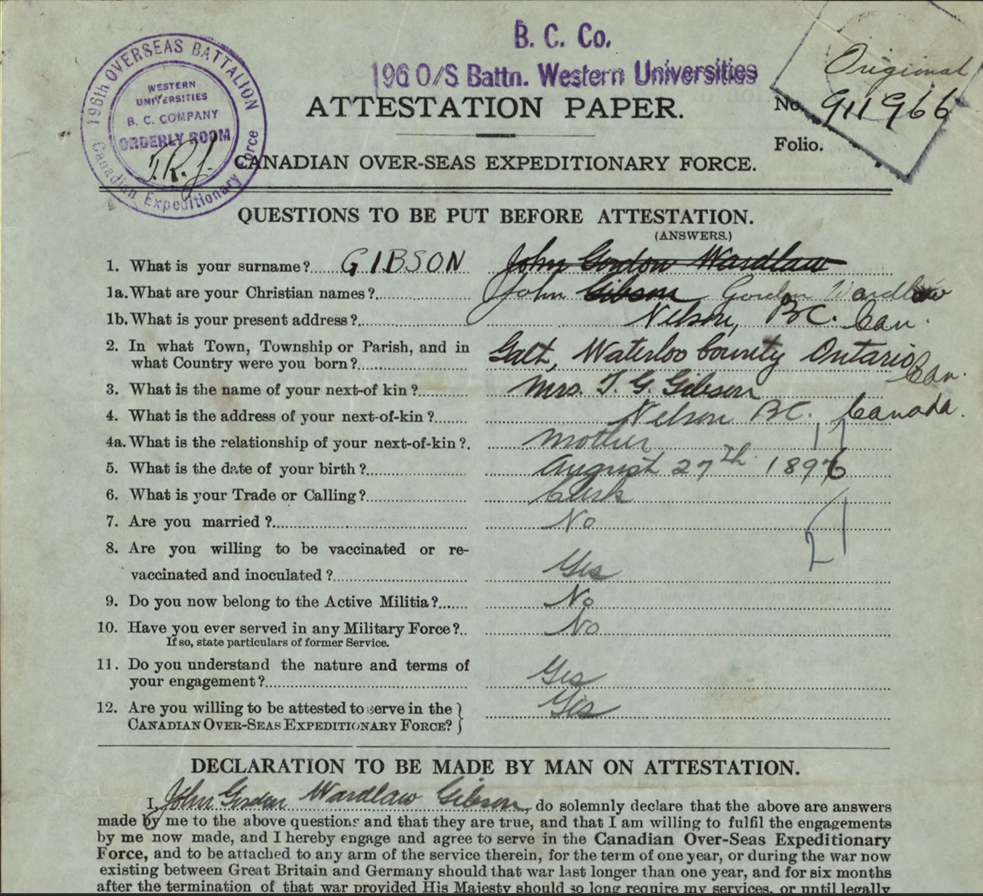 B. C. Co.
196 O/S Battn. Western Universities
Original
196th OVERSEAS BATTALION
WESTERN
UNIVERSITIES
B. C. COMPANY
ORDERLY ROOM
Canadian Expeditionary Force
ATTESTATION PAPER.
No. 911966
Folio.
CANADIAN OVER-SEAS EXPEDITIONARY FORCE.
QUESTIONS TO BE PUT BEFORE ATTESTATION.
(ANSWERS.)
1. What is your surname? GIBSON John Gordon Wardlaw
1a. What are your Christian names? John Gibson Gordon Wardlaw
1b. What is your present address? Nelson, B.C. Can.
2. In what Town, Township or Parish, and in
what Country were you born? Galt, Waterloo County Ontario Can.
3. What is the name of your next-of kin? Mrs. T. G. Gibson
4. What is the address of your next-of-kin? Nelson B.C. Canada.
4a. What is the relationship of your next-of-kin? mother
5. What is the date of your birth? August 27th 1896
6. What is your Trade or Calling? Clerk
7. Are you married? No
21
8. Are you willing to be vaccinated or re-
vaccinated and inoculated? Yes
9. Do you now belong to the Active Militia? No
10. Have you ever served in any Military Force? No
If so, state particulars of former Service.
11. Do you understand the nature and terms of
your engagement? Yes
12. Are you willing to be attested to serve in the }
CANADIAN OVER-SEAS EXPEDITIONARY FORCE? } Yes
DECLARATION TO BE MADE BY MAN ON ATTESTATION.
I, John Gordon Wardlaw Gibson, do solemnly declare that the above are answers
made by me to the above questions and that they are true, and that I am willing to fulfil the engagements
by me now made, and I hereby engage and agree to serve in the Canadian Over-Seas Expeditionary
Force, and to be attached to any arm of the service therein, for the term of one year, or during the war now
existing between Great Britain and Germany should that war last longer than one year, and for six months
after the termination of that war provided His Majesty should so long require my services, or until legally